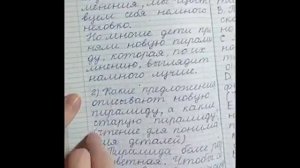 менения, мы чувст
вуем себя немного
неловко.
Но многие дети при
няли новую пирами
ду, которая, по их
мнению, выглядит
намного лучше.
2) Какие предложения
описывают новую
пирамиду, а какие
старую пирамиду.
(чтение для понима
ния деталей)
Пирамида более
цветная.